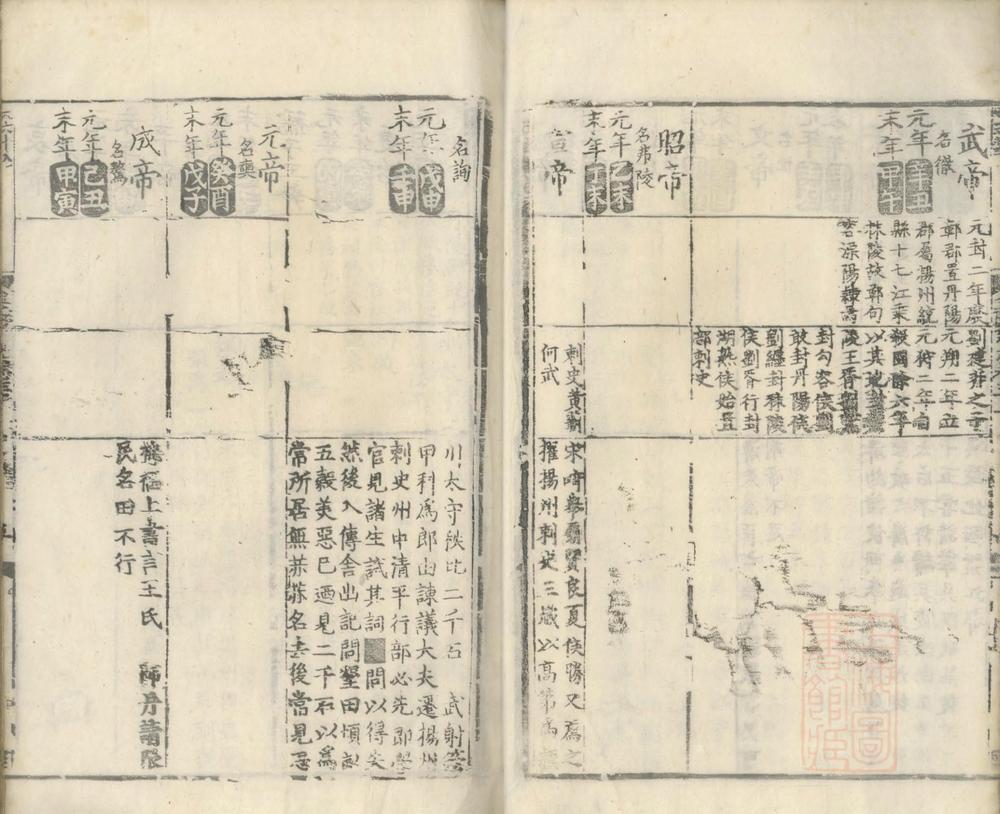 武帝
名徹
元年辛丑
末年甲午
元封二年廢
鄣郡置丹陽
郡屬揚州統
縣十七江乘
秣陵故鄣句
容溧陽
劉建井之子
元朔二年立
元狩二年自
殺國除六年
以其地
陵王胥
封句容侯劉
敢封丹陽侯
劉纏封秣陵
侯劉胥行封
湖熟侯始置
部刺史
昭帝
名弗陵
元年乙未
末年丁未
宣帝
刺史黃霸
何武
宋畸舉霸賢良夏侯勝又爲之
擢揚州刺史三歲以高第爲
名詢
元年戊申
末年壬申
川太守秩比二千石 武射策
甲科爲郎由諫議大夫遷揚州
刺史州中清平行部必先即學
官見諸生試其詞 問以得失
然後入傳舍出記問墾田頃畝
五穀美惡已迺見二千石以爲
常所居無赫赫名去後常見思
元帝
名奭
元年癸酉
末年戊子
成帝
名驁
元年己丑
末年甲寅
梅福上書言王氏 師丹請限
民名田不行